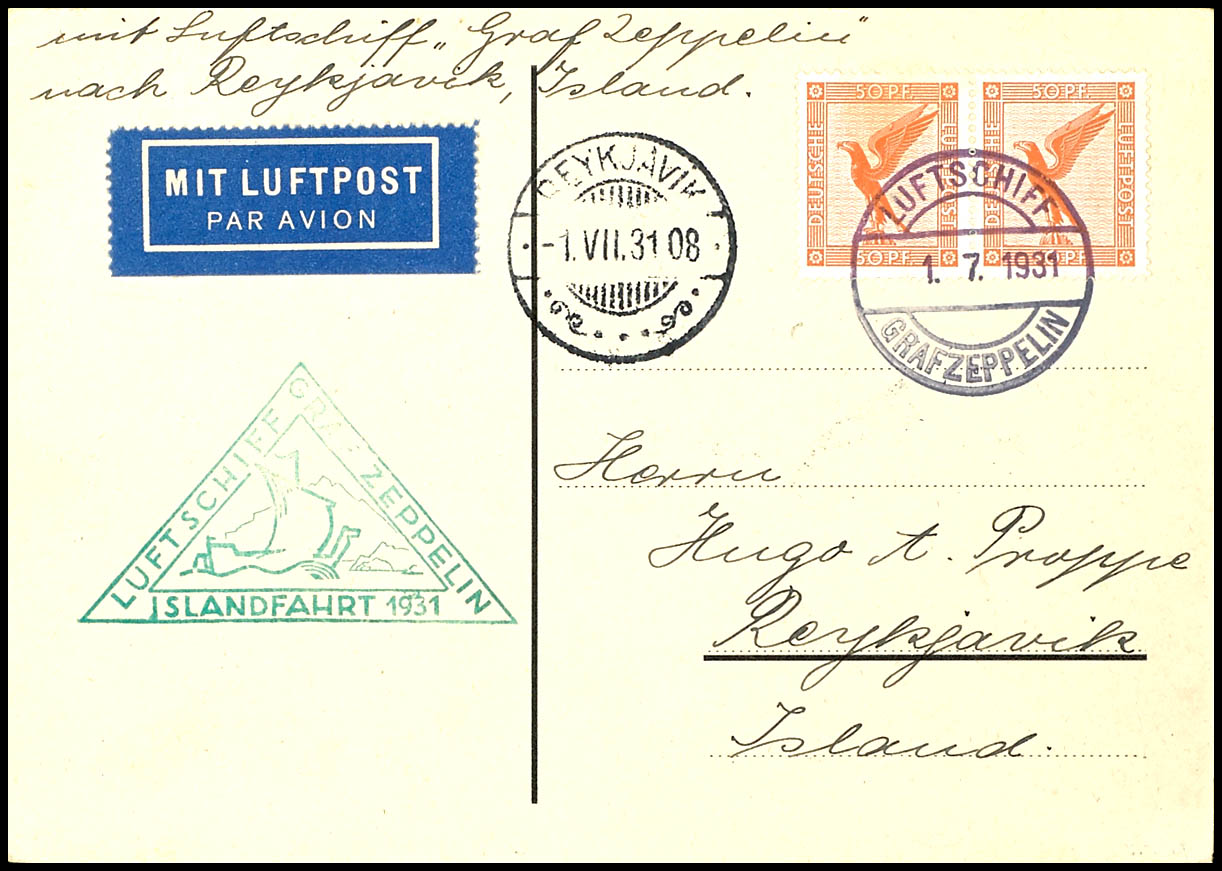 mit Luftschiff „Graf Zeppelin"
nach Reykjavik, Island.
MIT LUFTPOST
PAR AVION
REYKJAVÍK
-1.VII.31 08
50 PF.
DEUTSCHE
LUFTPOST
50 PF.
50 PF.
DEUTSCHE
LUFTPOST
50 PF.
LUFTSCHIFF
1. 7. 1931
GRAF ZEPPELIN
LUFTSCHIFF GRAF ZEPPELIN
ISLANDFAHRT 1931
Herrn
Hugo A. Proppe
Reykjavik
Island.